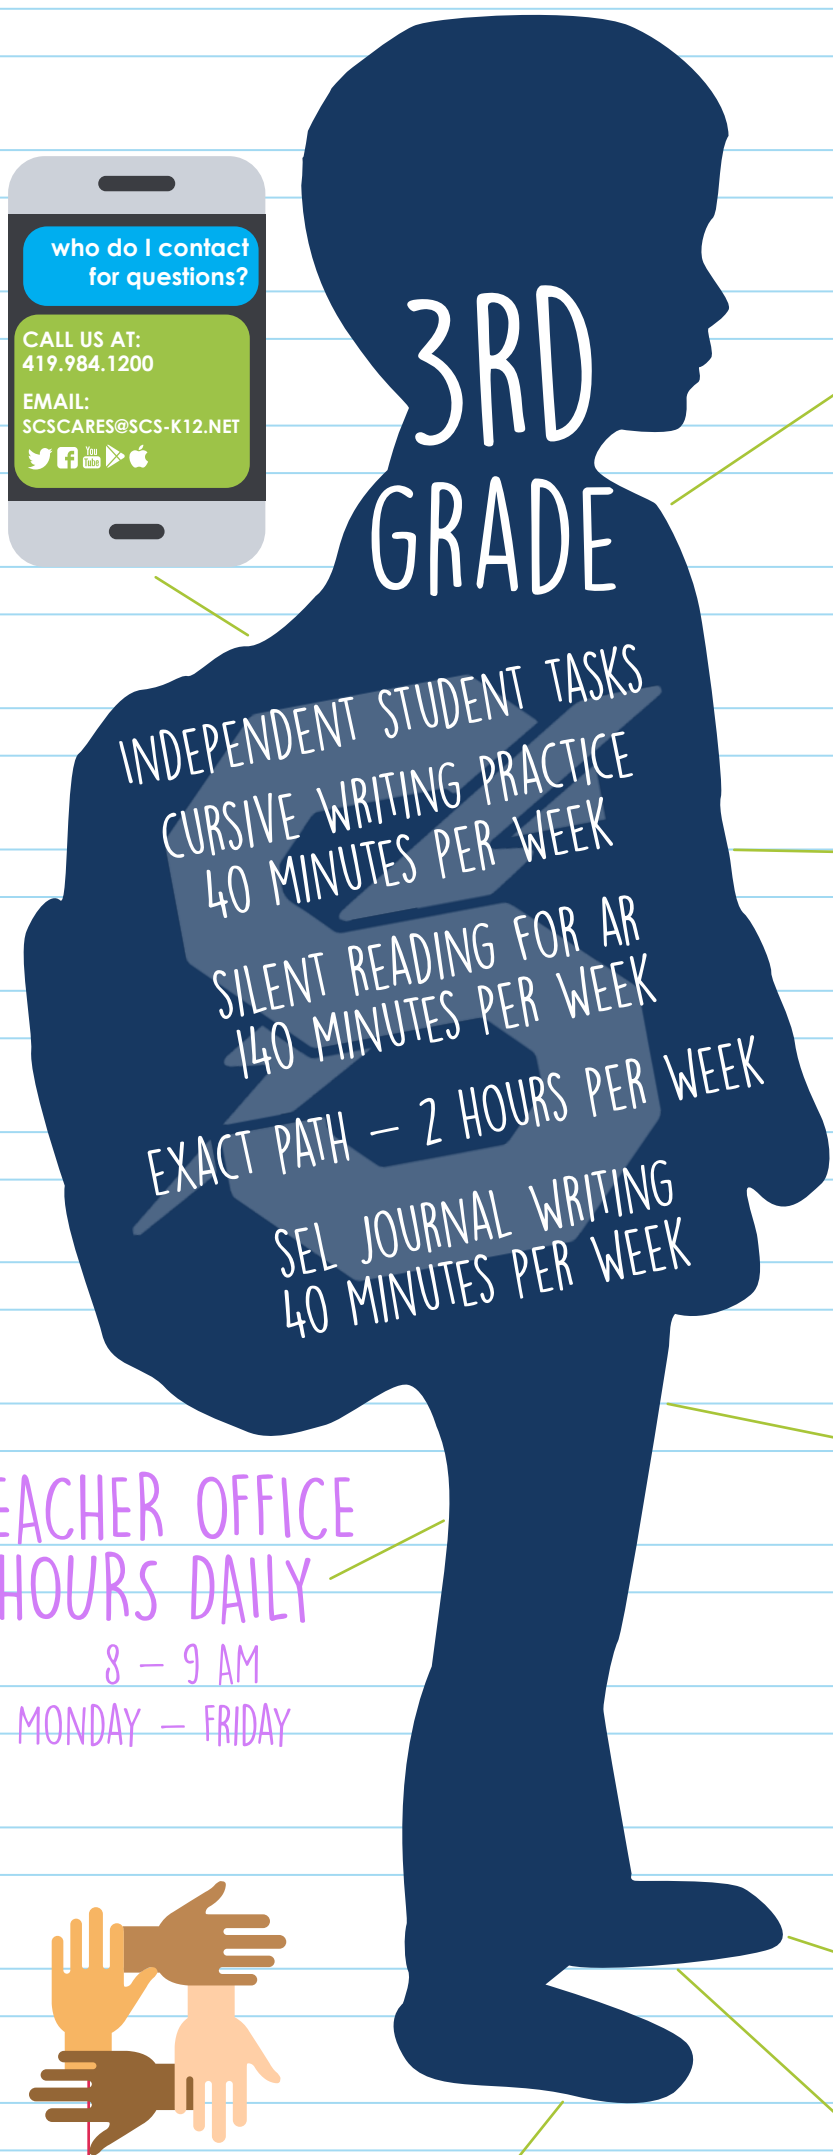 who do I contact
for questions?
CALL US AT:
419.984.1200
EMAIL:
SCSCARES@SCS-K12.NET
You
Tube
3RD
GRADE
INDEPENDENT STUDENT TASKS
CURSIVE WRITING PRACTICE
40 MINUTES PER WEEK
SILENT READING FOR AR
140 MINUTES PER WEEK
EXACT PATH – 2 HOURS PER WEEK
SEL JOURNAL WRITING
40 MINUTES PER WEEK
EACHER OFFICE
HOURS DAILY
8 – 9 AM
MONDAY – FRIDAY